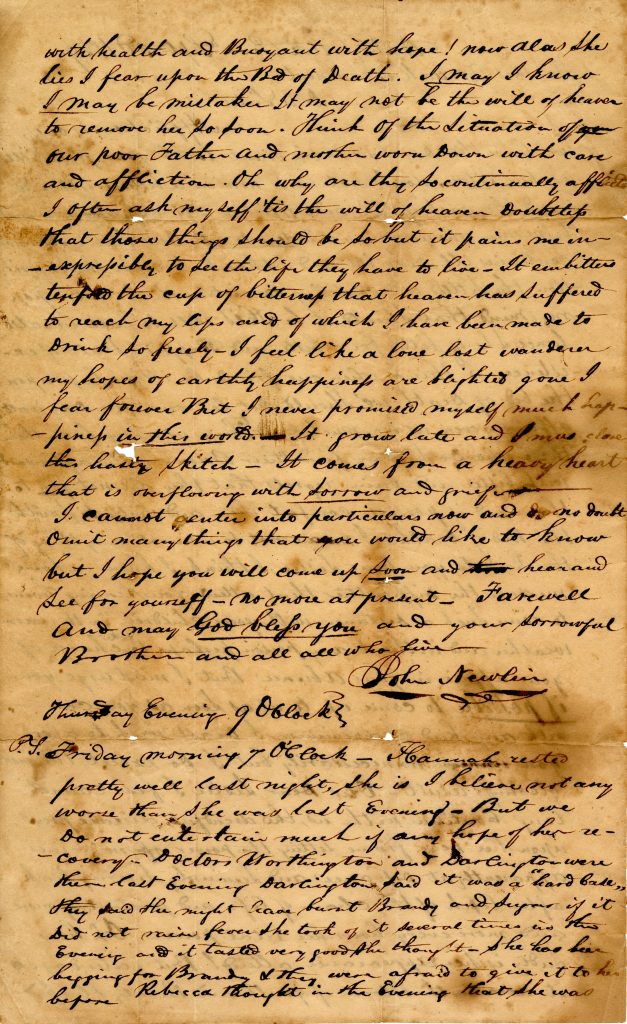 with health and Buoyant with hope! now alas She
lies I fear upon the Bed of Death. I may I know
I may be mistaken It may not be the will of heaven
to remove her so soon. Think of the Situation of
our poor Father and mother worn Down with care
and affliction. Oh why are they so continually afflicted
I often ask myself tis the will of heaven Doubtless
that those things should be so, but it pains me in-
-expressibly to see the life they have to live - It embitters
the cup of bitterness that heaven has suffered
to reach my lips and of which I have been made to
Drink so freely - I feel like a lone lost wanderer
my hopes of earthly happiness are blighted gone I
fear forever But I never promised myself much hap-
-piness in this world. - It grows late and I must close
this hasty Sketch - It comes from a heavy heart
that is overflowing with Sorrow and grief
I cannot enter into particulars now and do no doubt
Omit many things that you would like to know
but I hope you will come up Soon and hear and
See for yourself - no more at present - Farewell
And may God bless you and your Sorrowful
Brother and all all who live
John Newlin
Thursday Evening 9 OClock
P.S. Friday morning 7 OClock - Hannah rested
pretty well last night, She is I believe not any
worse than She was last Evening - But we
Do not entertain much if any hope of her re-
-covery - Doctors Worthington and Darlington were
there last Evening Darlington Said it was a "hard Case"
they said She might have burnt Brandy and Sugar if it
Did not raise fever She took of it several times in the
Evening and it tasted very good She thought - She has been
begging for Brandy & they were afraid to give it to her
before Rebecca thought in the Evening that She was